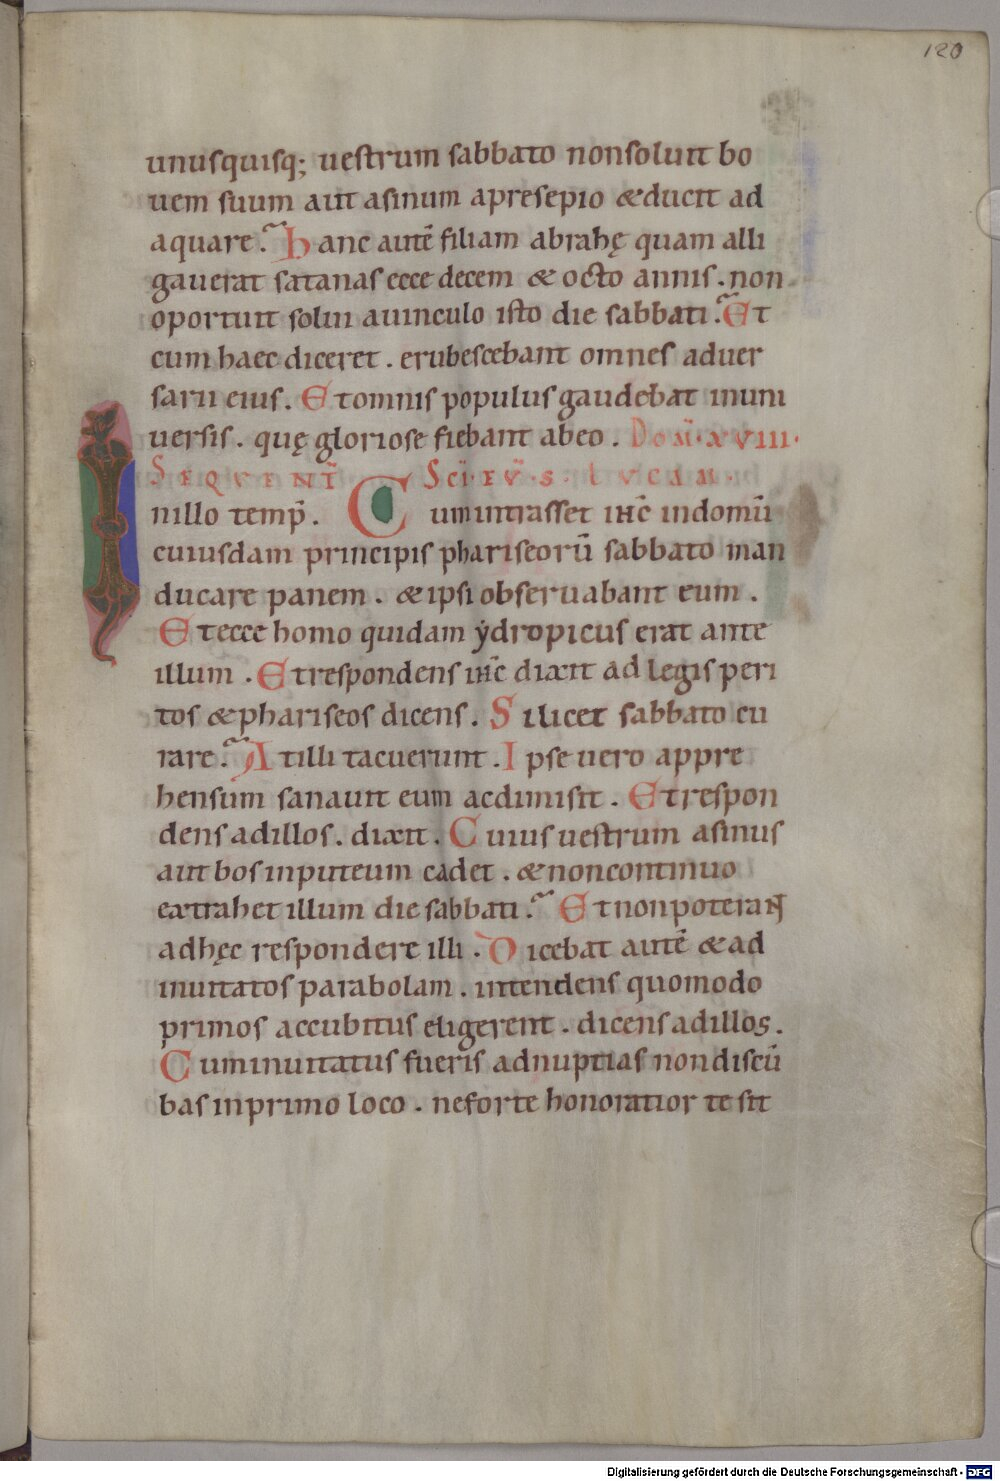 120
unusquisq; uestrum sabbato nonsoluit bo
uem suum aut asinum apresepio &ducit ad
aquare. hanc autē filiam abrahę quam alli
gauerat satanas ecce decem & octo annis. non
oportuit solui auinculo isto die sabbati. Et
cum haec diceret. erubescebant omnes aduer
sarii eius. Et omnis populus gaudebat inuni
uersis. quę gloriose fiebant abeo. Dom̄. xviii.
Sequenī Sc̄i. eṽ. s. lucam.
In illo temp̄. Cum intrasset ih̄c indomū
cuiusdam principis phariseorū sabbato man
ducare panem. &ipsi obseruabant eum.
Et ecce homo quidam ẏdropicus erat ante
illum. Et respondens ih̄c dixit ad legis peri
tos &phariseos dicens. Si licet sabbato cu
rare. At illi tacuerunt. Ipse uero appre
hensum sanauit eum acdimisit. Et respon
dens adillos. dixit. Cuius uestrum asinus
aut bos inputeum cadet. &noncontinuo
extrahet illum die sabbati. Et nonpoterant
adhęc respondere illi. Dicebat autē & ad
inuitatos parabolam. intendens quomodo
primos accubitus eligerent. dicens adillos.
Cum inuitatus fueris adnuptias nondiscū
bas inprimo loco. neforte honoratior te sit
Digitalisierung gefördert durch die Deutsche Forschungsgemeinschaft - DFG